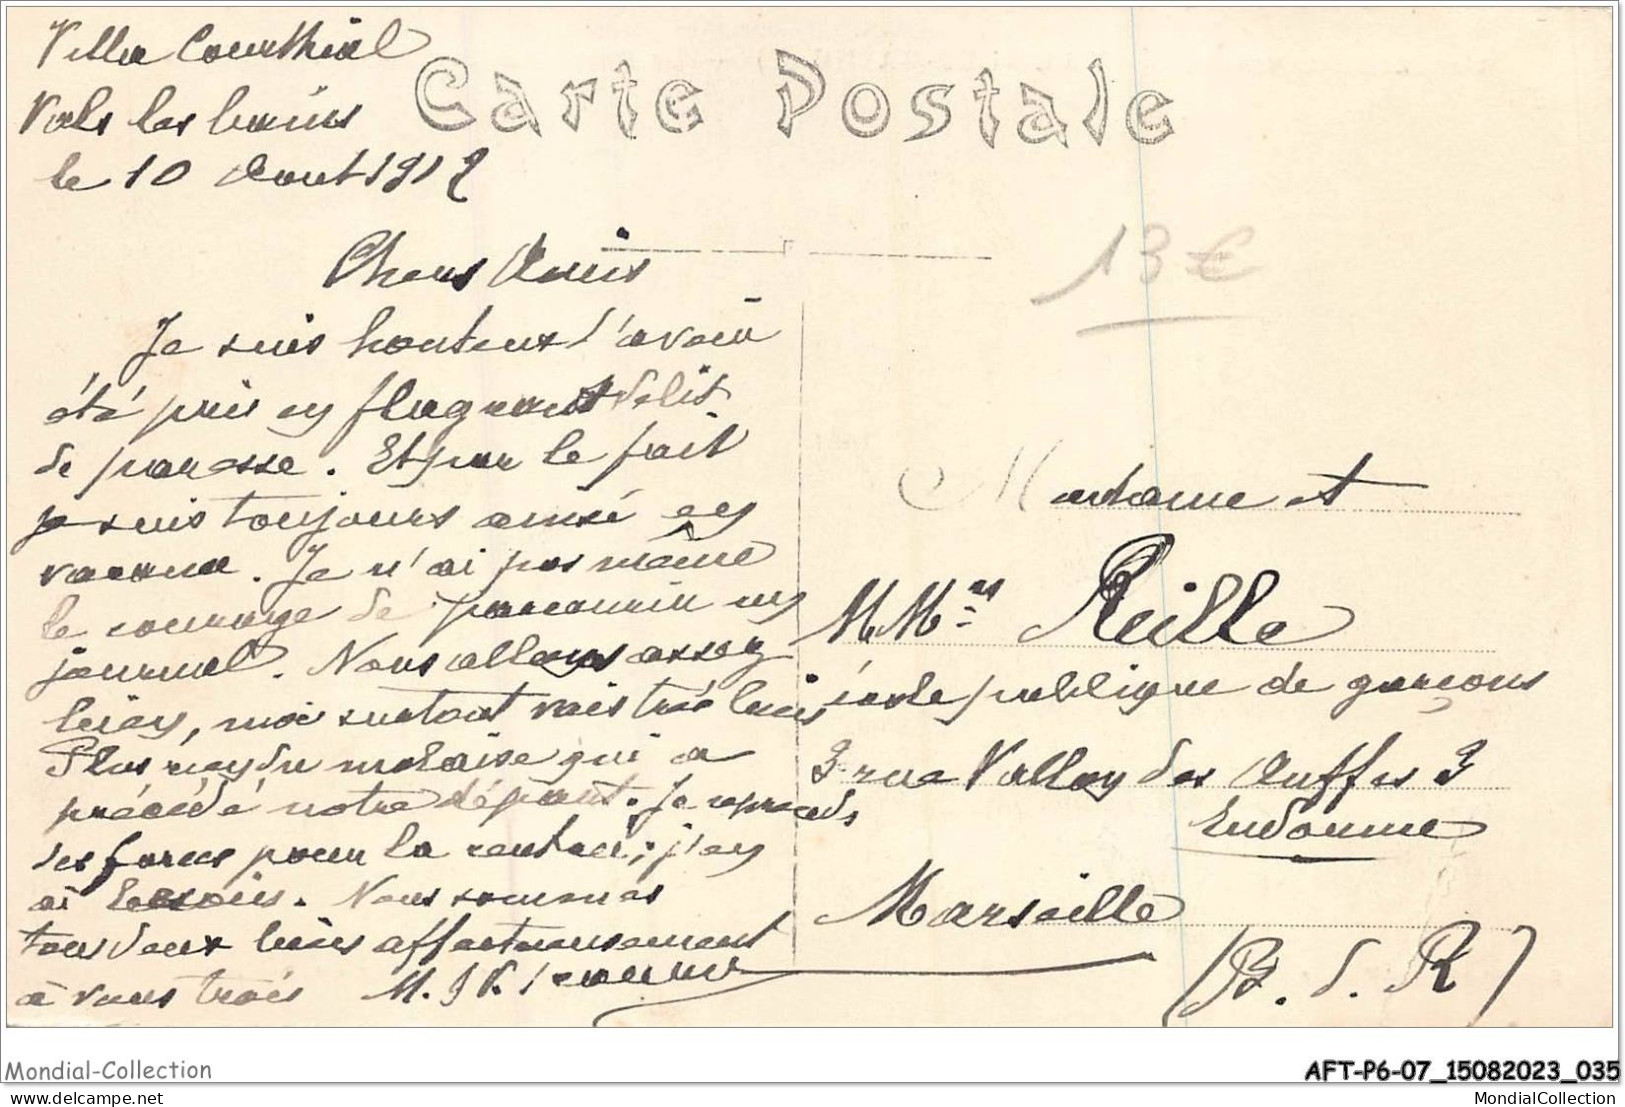 Villa Courthial
Vals les bains
le 10 Aout 1912
Carte Postale
13 €
Chers Amis
Je suis honteux d'avoir
été pris en flagrant délit
de paresse. Et par le fait
je suis toujours ainsi en
vacance. Je n'ai pas même
le courage de parcourir un
journal. Nous allons assez
bien, moi surtout vais très bien
Plus rien du malaise qui a
précédé notre départ. Je reprends
des forces pour la rentrée; j'en
ai besoin. Nous sommes
tous deux bien affectueusement
à vous trois M.
Madame et
MM. Reille
école publique de garçons
3 rue Vallon des Auffes 3
Endoume
Marseille
(B. d. R)
Mondial-Collection
AFT-P6-07_15082023_035
mondial-collection.com
MondialCollection